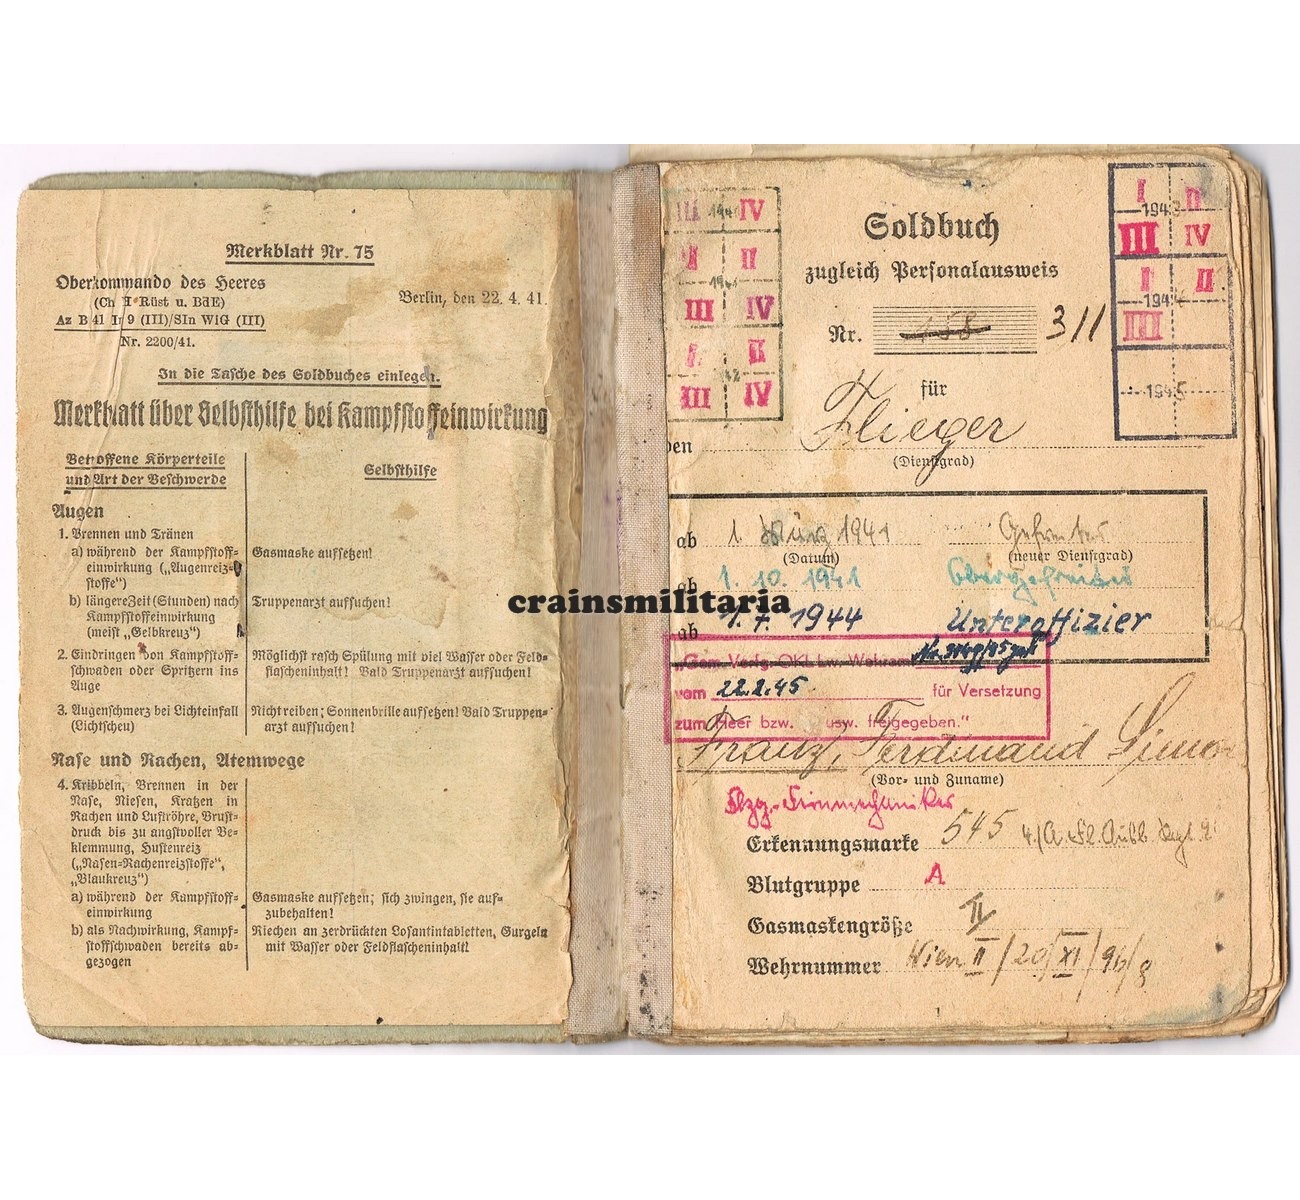 Merkblatt Nr. 75
Oberkommando des Heeres
(Ch H Rüst u. BdE)
Az B 41 In 9 (III)/SIn WiG (III)
Nr. 2200/41.
Berlin, den 22. 4. 41.
In die Tasche des Soldbuches einlegen.
Merkblatt über Selbsthilfe bei Kampfstoffeinwirkung
Betroffene Körperteile
und Art der Beschwerde
Selbsthilfe
Augen
1. Brennen und Tränen
a) während der Kampfstoff-
einwirkung („Augenreiz-
stoffe“)
Gasmaske aufsetzen!
b) längere Zeit (Stunden) nach
Kampfstoffeinwirkung
(meist „Gelbkreuz“)
Truppenarzt aufsuchen!
2. Eindringen von Kampfstoff-
schwaden oder Spritzern ins
Auge
Möglichst rasch Spülung mit viel Wasser oder Feld-
flascheninhalt! Bald Truppenarzt aufsuchen!
3. Augenschmerz bei Lichteinfall
(Lichtscheu)
Nicht reiben; Sonnenbrille aufsetzen! Bald Truppen-
arzt aufsuchen!
Nase und Rachen, Atemwege
4. Kribbeln, Brennen in der
Nase, Niesen, Kratzen in
Rachen und Luftröhre, Brust-
druck bis zu angstvoller Be-
klemmung, Hustenreiz
(„Nasen-Rachenreizstoffe“,
„Blaukreuz“)
a) während der Kampfstoff-
einwirkung
Gasmaske aufsetzen; sich zwingen, sie auf-
zubehalten!
b) als Nachwirkung, Kampf-
stoffschwaden bereits ab-
gezogen
Riechen an zerdrückten Losantintabletten, Gurgeln
mit Wasser oder Feldflascheninhalt!
III IV
I II
III IV
I II
III IV
Soldbuch
zugleich Personalausweis
Nr. 458 311
I II
1943
III IV
I II
1944
III
1945
für
den Flieger
(Dienstgrad)
ab 1. März 1941 Gefreiter
(Datum) (neuer Dienstgrad)
ab 1. 10. 1941 Obergefreiter
crainsmilitaria
ab 1. 7. 1944 Unteroffizier
„Gem. Verfg. OKL Lw. Wehramt
vom 22.2.45. für Versetzung
zum Heer bzw. usw. freigegeben."
Franz, Ferdinand Simon
(Vor- und Zuname)
Erkennungsmarke 545
Blutgruppe A
Gasmaskengröße II
Wehrnummer Wien II/20/XI/96/8